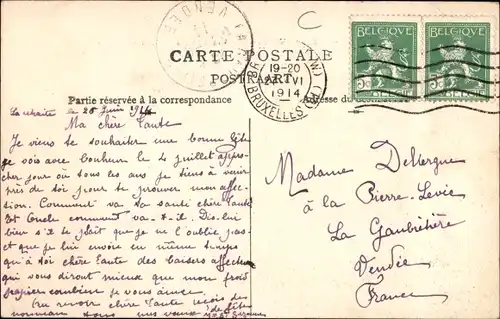 CARTE POSTALE
POSTKAART
Partie réservée à la correspondance
Adresse du
BELGIQUE
BELGIQUE
VENDÉE
19-20
24 VI
1914
BRUXELLES
le 25 Juin 1914
Ma chère Tante
Je viens te souhaiter une bonne fête
je vois avec bonheur le 4 juillet appro-
cher jour où tous les ans je tiens à venir
près de toi pour te prouver mon affec-
sion. Comment va ta santé chère Tante
Et Oncle comment va-t-il. Dis-lui
bien s'il te plaît que je ne l'oublie pas
et que je lui envoie en même temps
qu'à toi chère Tante des baisers affectueux
qui vous diront mieux que mon froid
papier combien je vous aime.
Au revoir chère Tante reçois de
nouveau tous mes vœux de fête
Suzanne
Madame Delhergue
à la Pierre-Levée
La Gaubretière
Vendée
France